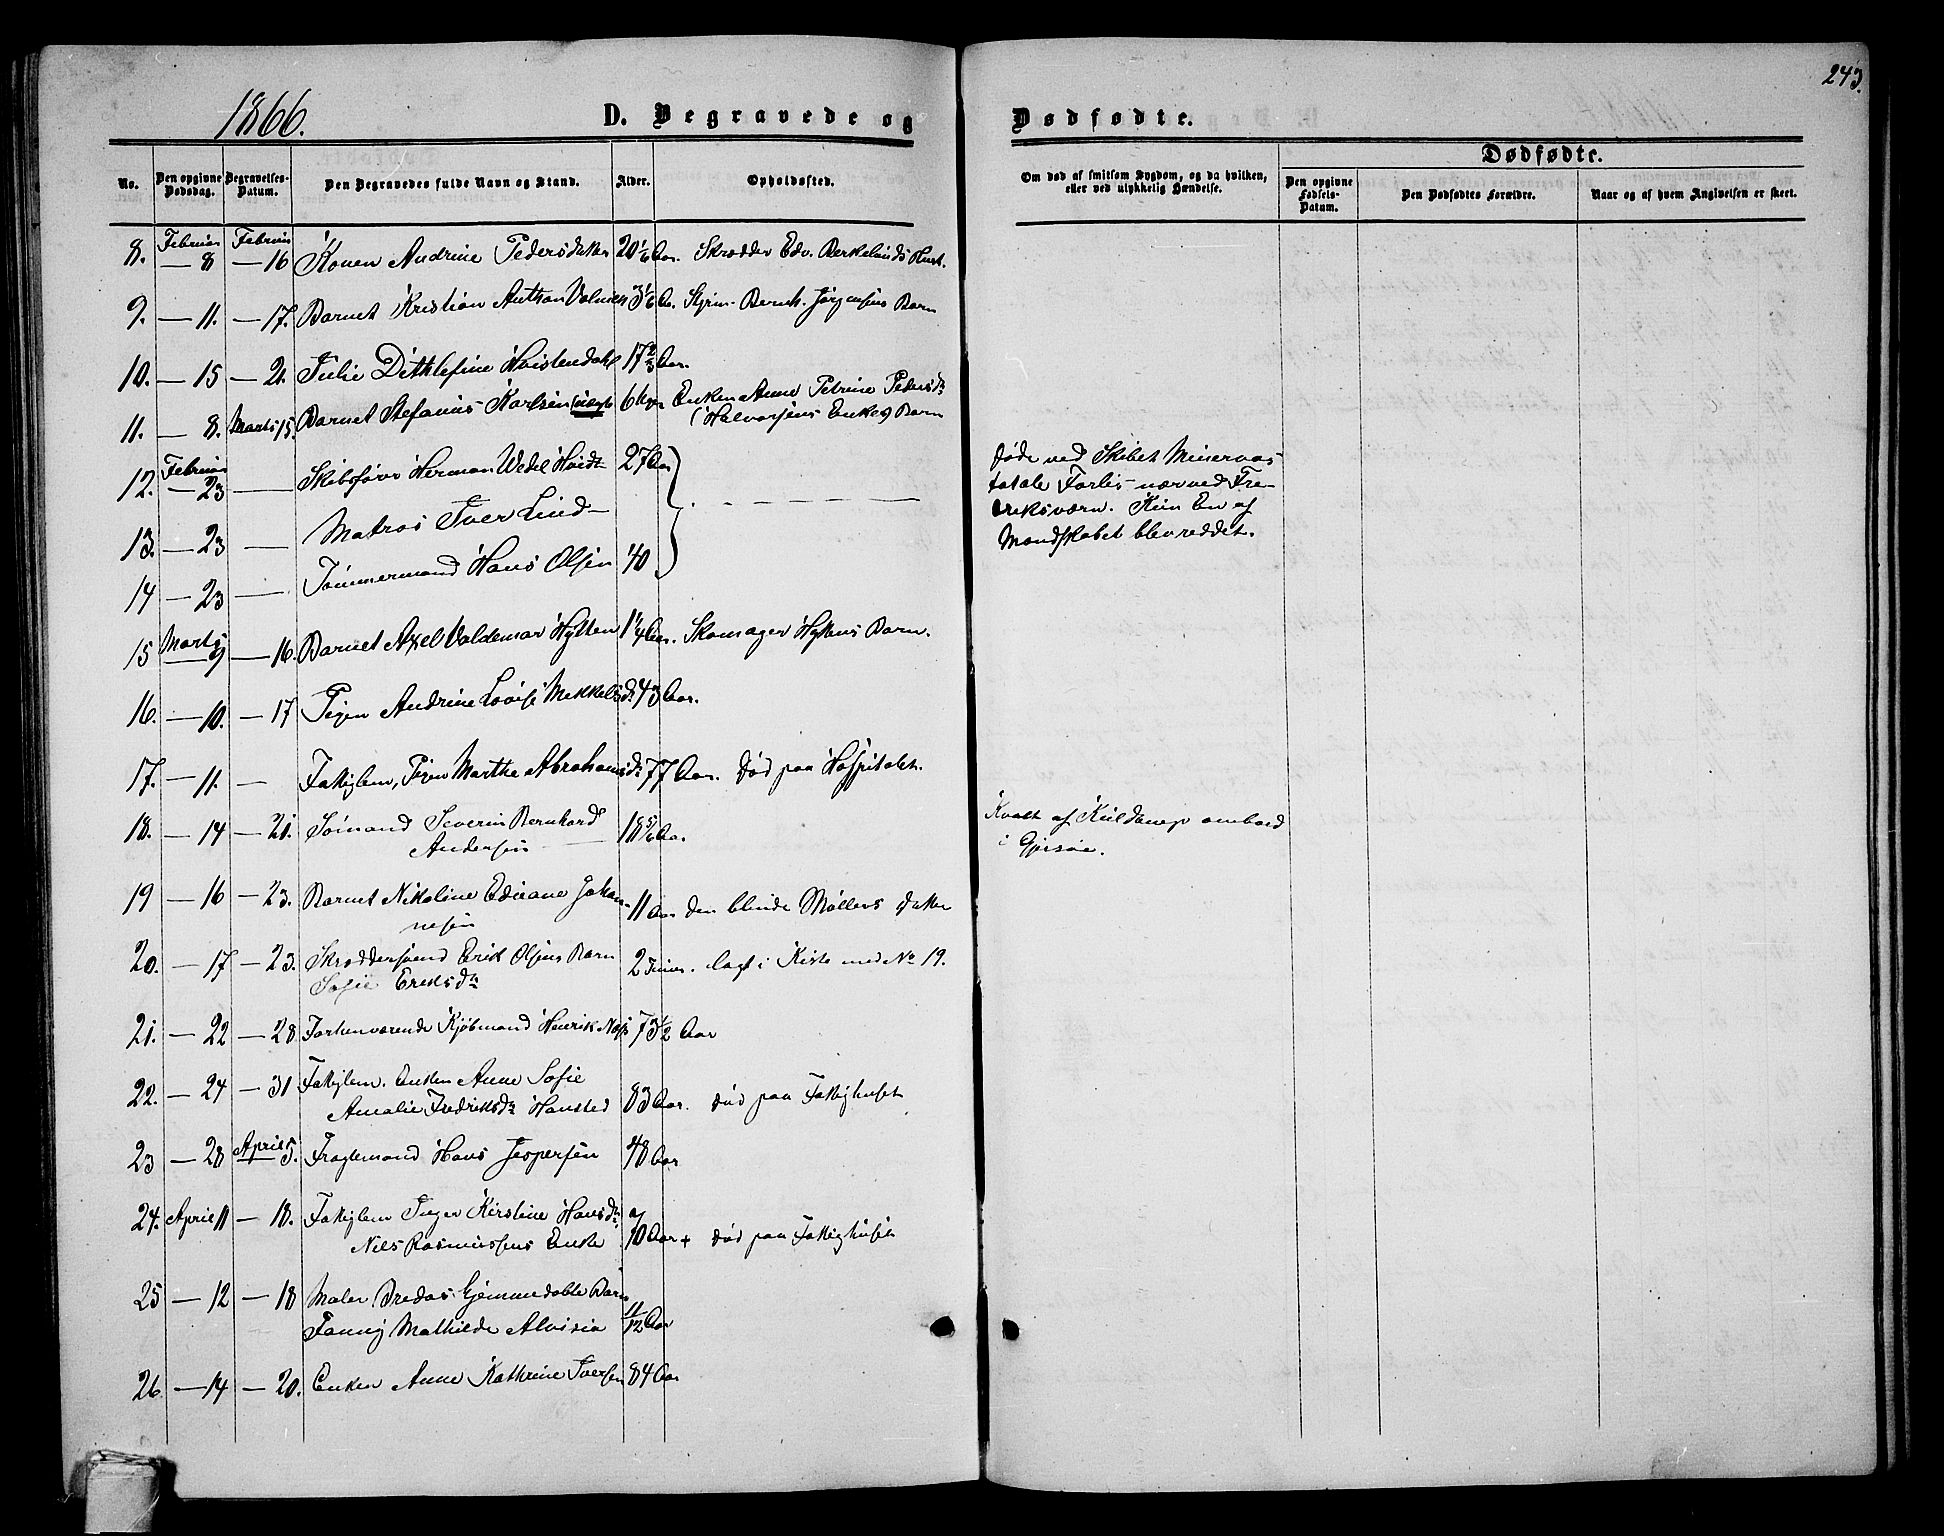 243.
1866.
D. Begravede og Dødfødte.
No.
Den opgivne Dødsdag.
Begravelses-Datum.
Den Begravedes fulde Navn og Stand.
Alder.
Opholdssted.
Om død af smitsom Sygdom, og da hvilken, eller ved ulykkelig Hændelse.
Dødfødte.
Den opgivne Fødsels-Datum.
Den Dødfødtes Forældre.
Naar og af hvem Angivelsen er skeet.
8. Februar — 8 Februar — 16 Konen Andrine Pedersdatter 20 1/6 Aar. Skrædder Edv. Berkelands Hust.
9. — 11. — 17. Barnet Kristian Anthon 3 1/6 Aa. Bernh. Jørgensens Barn
10. — 15 — 21. Julie Dithlefine Hvistendahl 17 2/3 Aar.
11. — 8. Marts 15. Barnet Stefanus Karlsen (uægte) 6 Uger Enken Anne Petrine Pedersdr
(Halvorsens Enke) Barn
12. Februar — 23 — Skibsfører Herman Wedel Hvidt 27 Aar
Døde ved Skibet Minervas
totale Forlis nær ved Fre-
driksværn. Kun En af
Mandskabet blev reddet.
13. — 23 — Matros Iver Lind
14 — 23 — Tømmermand Hans Olsen 40
15 Marts 9 — 16. Barnet Axel Valdemar Hytten 1 1/4 Aar. Skomager Hyttens Barn.
16. — 10. — 17 Pigen Andrine Lovise Mekkelsdr 43 Aar.
17. — 11. — Fattiglem, Pigen Marthe Abrahamsdr 77 Aar. død paa Hospitalet.
18. — 14 — 21. Sømand Severin Bernhard
Andersen 18 5/6 Aar.
Kvalt af Kuldamp ombord
i
19 — 16 — 23. Barnet Nikoline Edvane Johan-
nesen 11 Aar den blinde Møllers Datter
20. — 17 — 23. Skræddersvend Erik Olsens Barn
Sofie Eriksdr 2 Timer. lagt i Kiste med No 19.
21. — 22 — 28 Forhenværende Kjøbmand Henrik 73 1/2 Aar
22. — 24 — 31 Fattiglem. Enken Anne Sofie
Amalie Fredriksdr Hansted 83 Aar. død paa Fattighuset
23 — 28 April 5. Fragtemand Hans Jespersen 48 Aar
24. April 11 — 18. Fattiglem Inger Kirstine Hansdr
Nils Rasmussens Enke 70 Aar + død paa Fattighuset
25 — 12 — 18 Maler Gjemmedobte Barn
Fanny Mathilde Aloisia 11/12 Aar
26. — 14 — 20. Enken Anne Kathrine Iversen 84 Aar